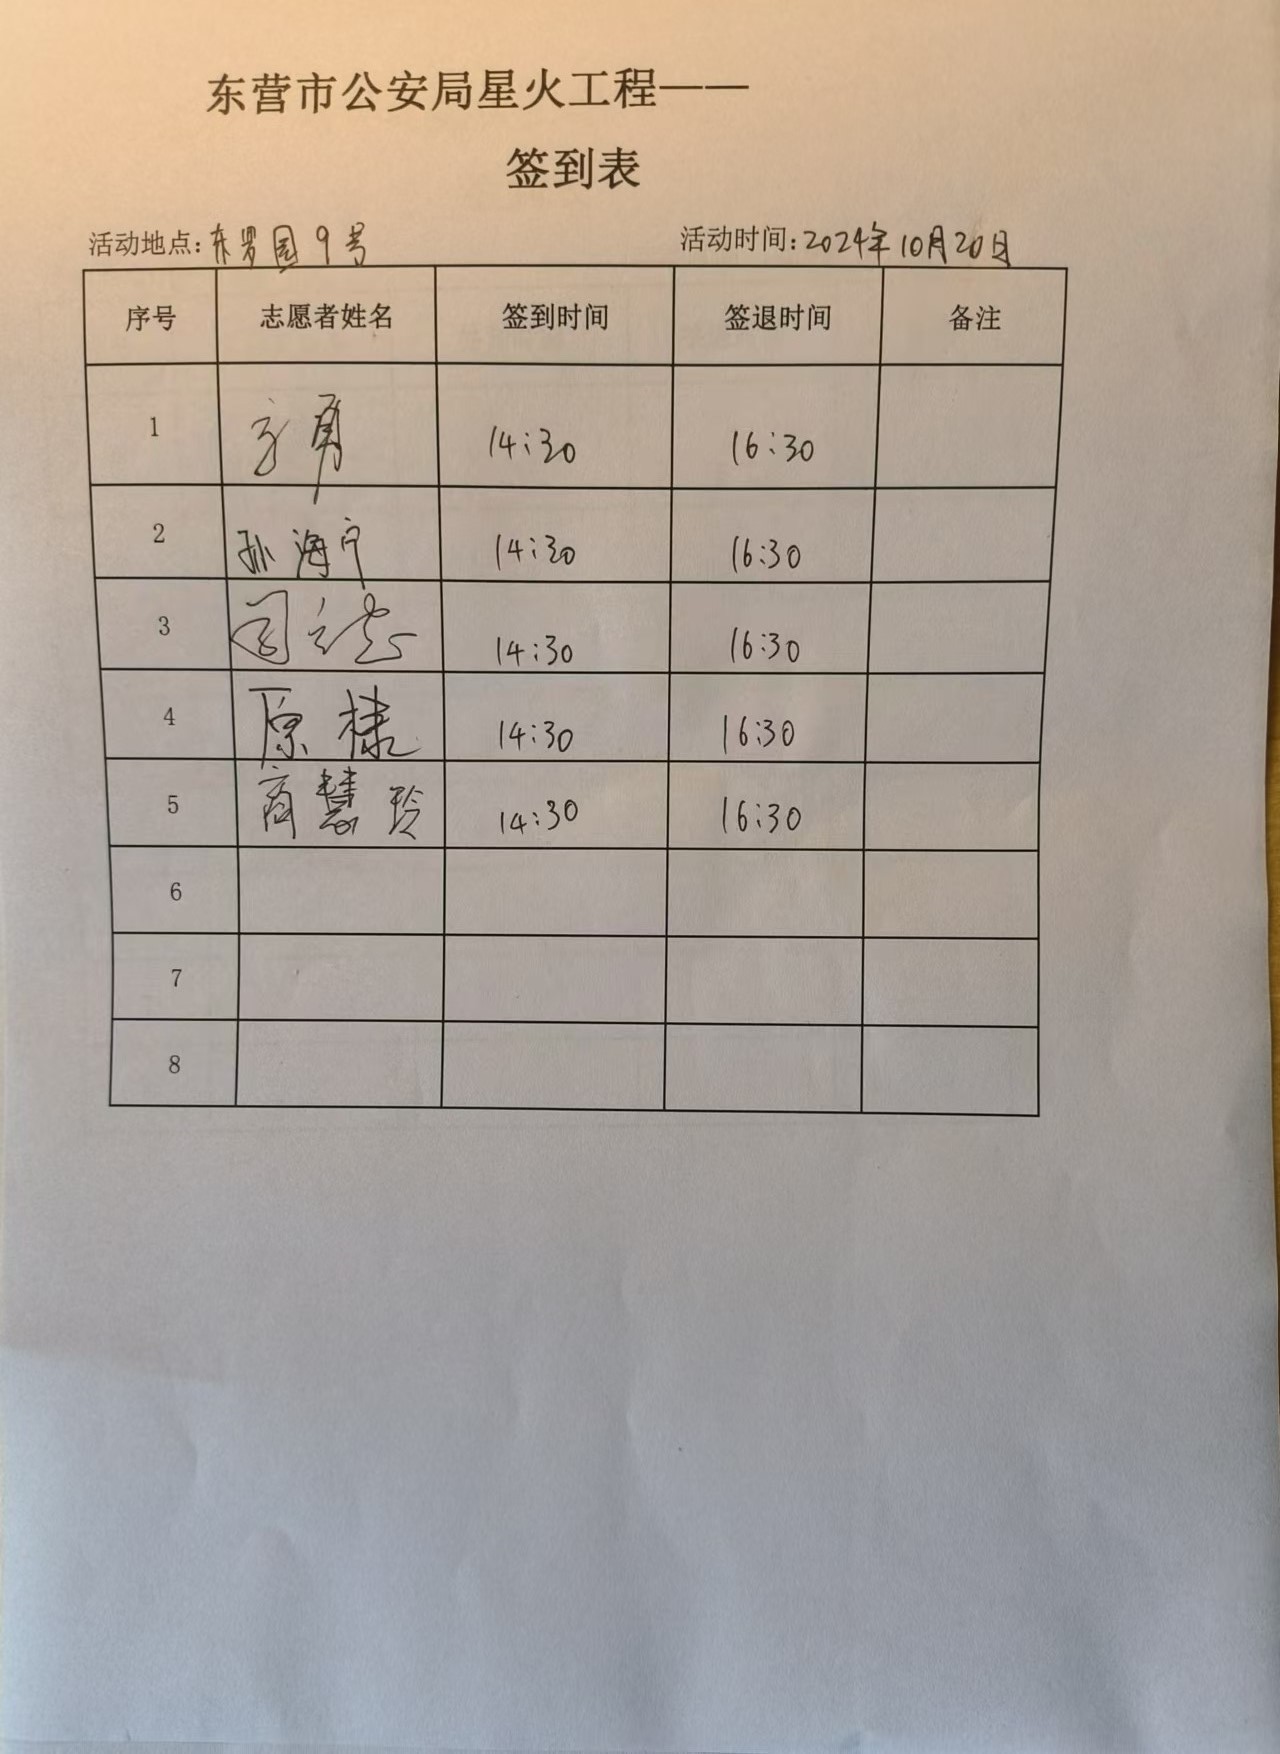 东营市公安局星火工程——
签到表
活动地点：东罗园9号 活动时间：2024年10月20日
序号 志愿者姓名 签到时间 签退时间 备注
1 方勇 14:30 16:30
2 孙海宁 14:30 16:30
3 14:30 16:30
4 原棣 14:30 16:30
5 商慧玲 14:30 16:30
6
7
8